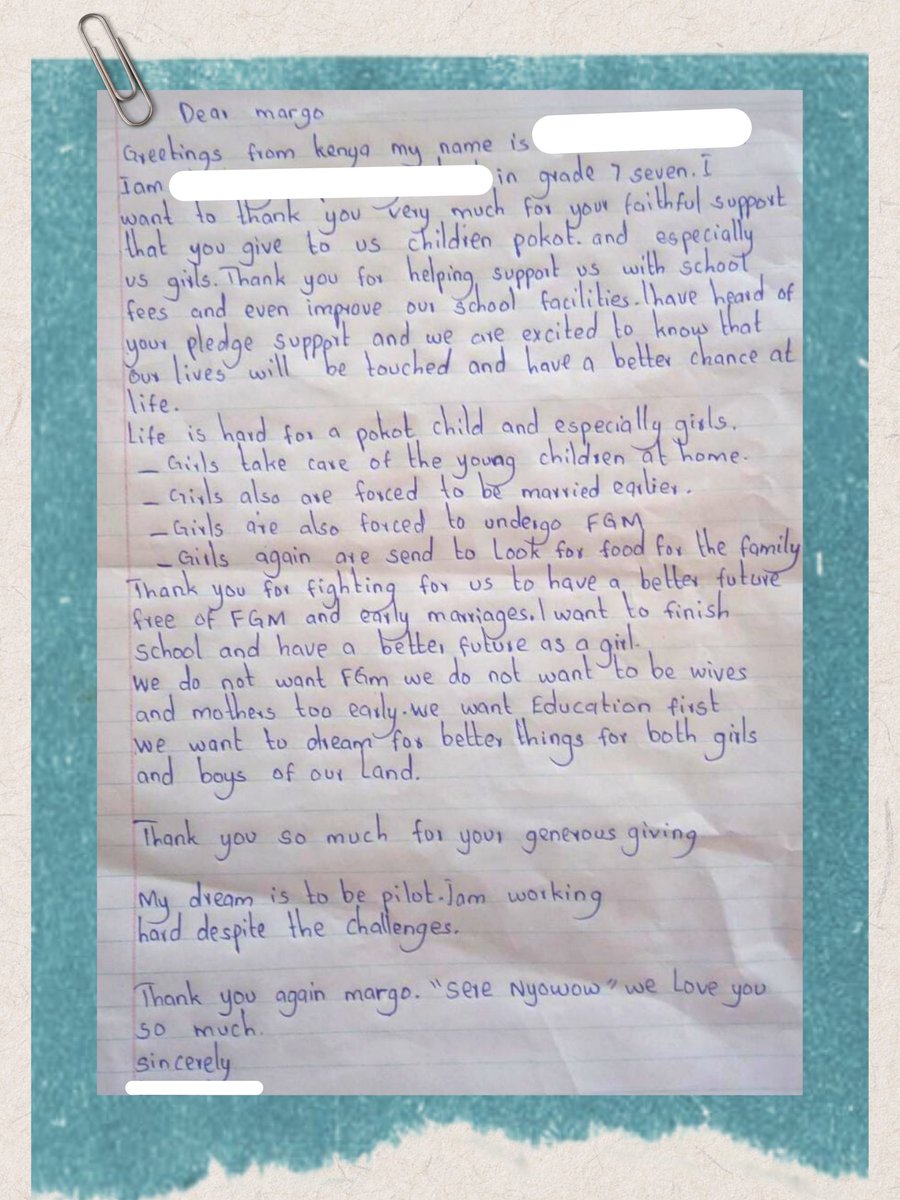 Dear margo
Greetings from kenya my name is
Iam in grade 7 seven. I
want to thank you very much for your faithful support
that you give to us children pokot. and especially
us girls. Thank you for helping support us with school
fees and even improve our school facilities. Ihave heard of
your pledge support and we are excited to know that
our lives will be touched and have a better chance at
life.
Life is hard for a pokot child and especially girls.
- Girls take care of the young children at home.
- Girls also are forced to be married earlier.
- Girls are also forced to undergo FGM
- Girls again are send to look for food for the family
Thank you for fighting for us to have a better future
free of FGM and early marriages. I want to finish
school and have a better future as a girl.
we do not want FGm we do not want to be wives
and mothers too early. we want Education first
we want to dream for better things for both girls
and boys of our land.
Thank you so much for your generous giving
My dream is to be pilot. Iam working
hard despite the challenges.
Thank you again margo. "Sere Nyowow" we love you
so much.
sincerely